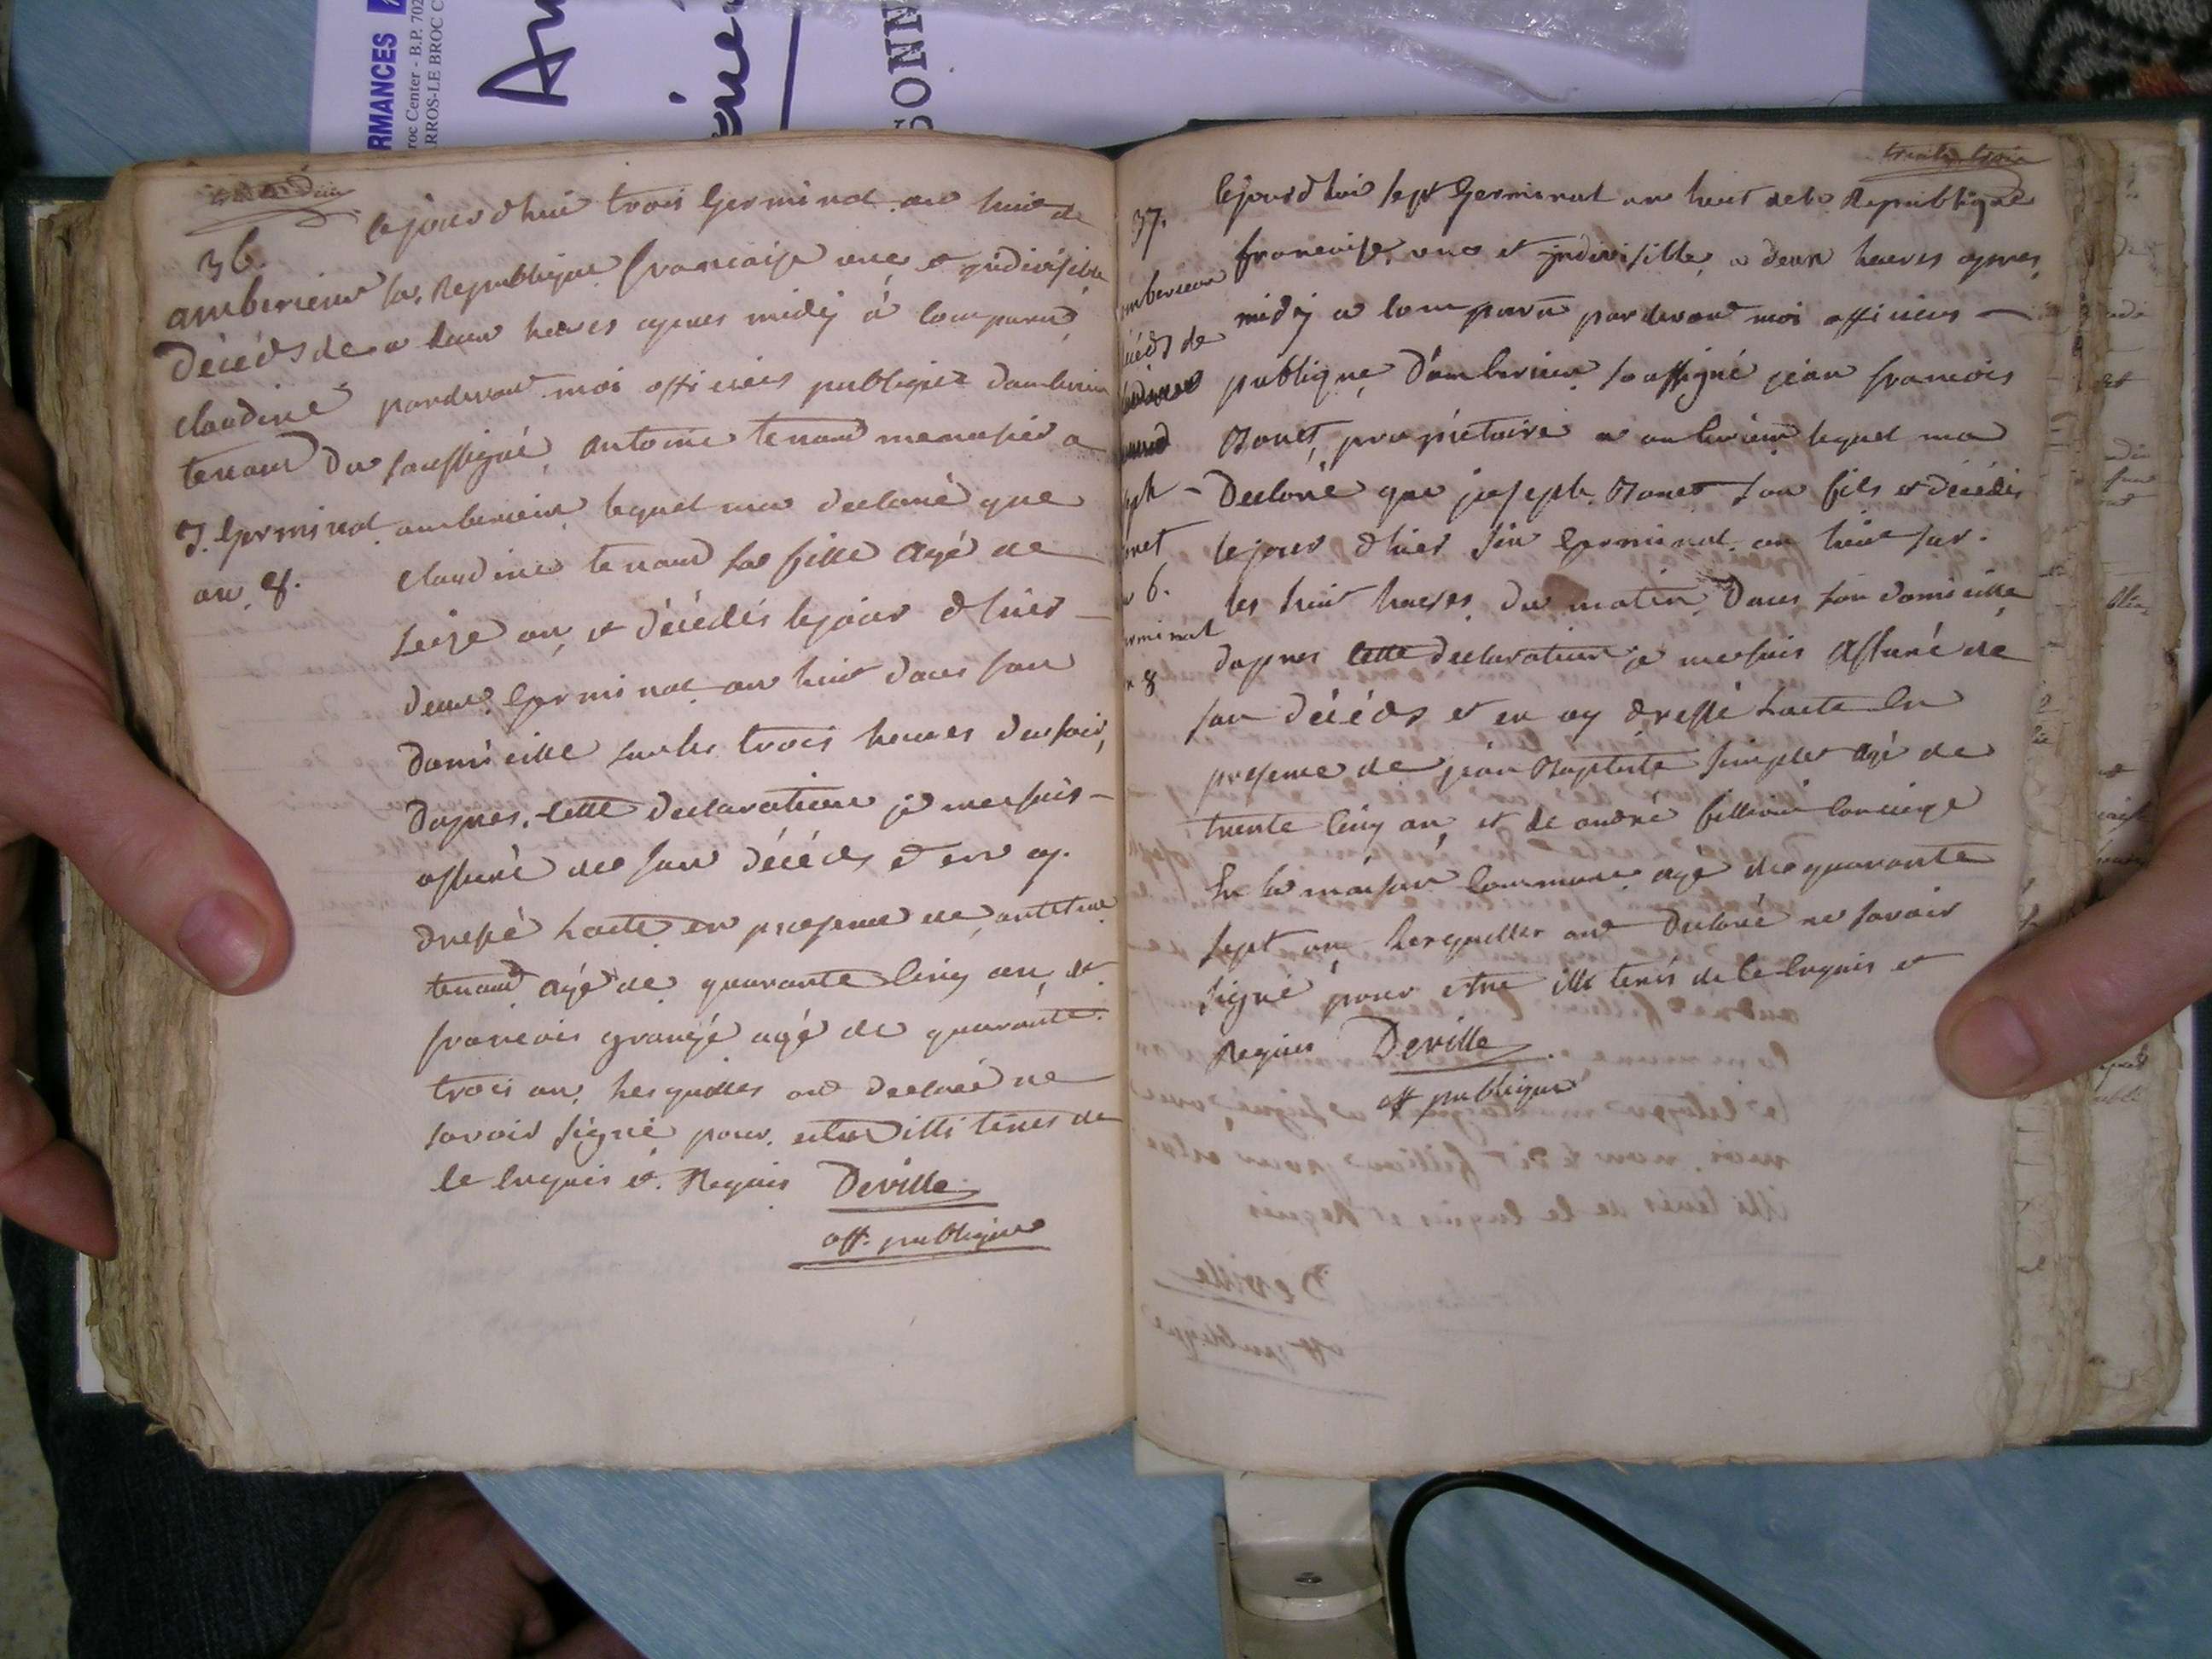 RMANCES
roc Center - B.P. 702
RROS-LE BROC C
SONN
36.
amberieux
Décéds de
claudine
tenand
3. Germinal
an 8.
Cejourdhui trois Germinal an huit de
la Republique francaise une et jndivisible
a deux heures apres midÿ à comparu
pardevant moi officiers publique damberieu
soussigné, antoine tenand menusier a
amberieux lequel ma declaré que
claudine tenand sa fille agé de
seize an, et décédés lejour dhier
deux Germinal an huit dans son
domicille sur les trois heures du soir,
dapres cette declaration je me suis
assuré de son décéds et en ay
dressé lacte en presence de antoine
tenand agé de quarante cinq an, et
francois grangé agé de quarante
trois an, lesquelles ont declaré ne
savoir signé pour estre illiterés de
ce enquis et Requis Deville
off. publique
trente trois
37.
mberieux
écéds de
eph
onet
6.
erminal
8
Cejourdhui sept Germinal an huit de la Republique
francaise, une et jndivisille a deux heures apres
midÿ a comparu pardevant moi officiers
publique D'amberieux soussigné jean francois
Bonet, propriétaire a amberieux lequel ma
Declaré que joseph Bonet son fils et décédés
lejour dhier six Germinal an huit sur
les huit heures du matin Dans son domicille
dapres cette declaration je me suis assuré de
son décéds et en ay dressé lacte en
presence de jean Baptiste simplet agé de
trente cinq an, et de andré fillion concierge
En la maison commune agé de quarante
sept an, lesquelles ont declaré ne savoir
signé pour estre illiterés de ce enquis et
Requis Deville
off publique